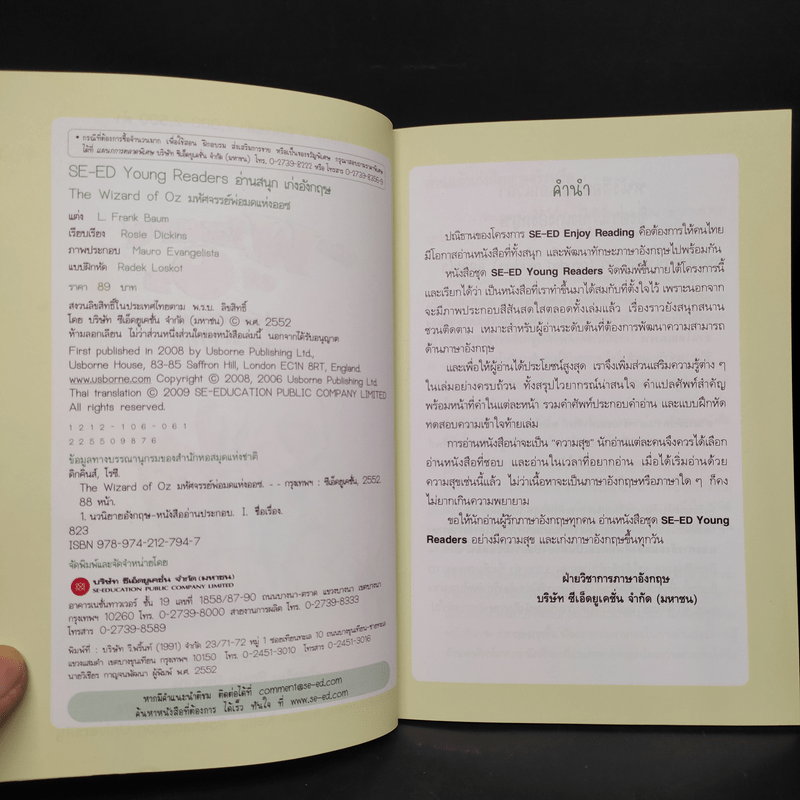 • กรณีที่ต้องการซื้อจำนวนมาก เพื่อใช้สอน ฝึกอบรม ส่งเสริมการขาย หรือเป็นของขวัญพิเศษ กรุณาสอบถามราคาพิเศษ
ได้ที่ แผนกการตลาดพิเศษ บริษัท ซีเอ็ดยูเคชั่น จำกัด (มหาชน) โทร. 0-2739-8222 หรือ โทรสาร 0-2739-8356-9
SE-ED Young Readers อ่านสนุก เก่งอังกฤษ
The Wizard of Oz มหัศจรรย์พ่อมดแห่งออซ
แต่ง L. Frank Baum
เรียบเรียง Rosie Dickins
ภาพประกอบ Mauro Evangelista
แบบฝึกหัด Radek Loskot
ราคา 89 บาท
สงวนลิขสิทธิ์ในประเทศไทยตาม พ.ร.บ. ลิขสิทธิ์
โดย บริษัท ซีเอ็ดยูเคชั่น จำกัด (มหาชน) © พ.ศ. 2552
ห้ามลอกเลียน ไม่ว่าส่วนหนึ่งส่วนใดของหนังสือเล่มนี้ นอกจากได้รับอนุญาต
First published in 2008 by Usborne Publishing Ltd.,
Usborne House, 83-85 Saffron Hill, London EC1N 8RT, England.
www.usborne.com Copyright © 2008, 2006 Usborne Publishing Ltd.
Thai translation © 2009 SE-EDUCATION PUBLIC COMPANY LIMITED
All rights reserved.
1 2 1 2 - 1 0 6 - 0 6 1
2 2 5 5 0 9 8 7 6
ข้อมูลทางบรรณานุกรมของสำนักหอสมุดแห่งชาติ
ดิกคินส์, โรซี.
The Wizard of Oz มหัศจรรย์พ่อมดแห่งออซ. - - กรุงเทพฯ : ซีเอ็ดยูเคชั่น, 2552.
88 หน้า.
1. นวนิยายอังกฤษ-หนังสืออ่านประกอบ. I. ชื่อเรื่อง.
823
ISBN 978-974-212-794-7
จัดพิมพ์และจัดจำหน่ายโดย
บริษัท ซีเอ็ดยูเคชั่น จำกัด (มหาชน)
SE-EDUCATION PUBLIC COMPANY LIMITED
อาคารเนชั่นทาวเวอร์ ชั้น 19 เลขที่ 1858/87-90 ถนนบางนา-ตราด แขวงบางนา เขตบางนา
กรุงเทพฯ 10260 โทร. 0-2739-8000 สายงานการผลิต โทร. 0-2739-8333
โทรสาร 0-2739-8589
พิมพ์ที่ : บริษัท วี.พริ้นท์ (1991) จำกัด 23/71-72 หมู่ 1 ซอยเทียนทะเล 10 ถนนบางขุนเทียน-ชายทะเล
แขวงแสมดำ เขตบางขุนเทียน กรุงเทพฯ 10150 โทร. 0-2451-3010 โทรสาร 0-2451-3016
นายวิเชียร กาญจนพัฒนา ผู้พิมพ์ พ.ศ. 2552
หากมีคำแนะนำติชม ติดต่อได้ที่ comment@se-ed.com
ค้นหาหนังสือที่ต้องการ ได้เร็ว ทันใจ ที่ www.se-ed.com
คำนำ
ปณิธานของโครงการ SE-ED Enjoy Reading คือต้องการให้คนไทย
มีโอกาสอ่านหนังสือที่ทั้งสนุก และพัฒนาทักษะภาษาอังกฤษไปพร้อมกัน
หนังสือชุด SE-ED Young Readers จัดพิมพ์ขึ้นภายใต้โครงการนี้
และเรียกได้ว่า เป็นหนังสือที่เราทำขึ้นมาได้สมกับที่ตั้งใจไว้ เพราะนอกจาก
จะมีภาพประกอบสีสันสดใสตลอดทั้งเล่มแล้ว เรื่องราวยังสนุกสนาน
ชวนติดตาม เหมาะสำหรับผู้อ่านระดับต้นที่ต้องการพัฒนาความสามารถ
ด้านภาษาอังกฤษ
และเพื่อให้ผู้อ่านได้ประโยชน์สูงสุด เราจึงเพิ่มส่วนเสริมความรู้ต่าง ๆ
ในเล่มอย่างครบถ้วน ทั้งสรุปไวยากรณ์น่าสนใจ คำแปลศัพท์สำคัญ
พร้อมหน้าที่คำในแต่ละหน้า รวมคำศัพท์ประกอบคำอ่าน และแบบฝึกหัด
ทดสอบความเข้าใจท้ายเล่ม
การอ่านหนังสือน่าจะเป็น "ความสุข" นักอ่านแต่ละคนจึงควรได้เลือก
อ่านหนังสือที่ชอบ และอ่านในเวลาที่อยากอ่าน เมื่อได้เริ่มอ่านด้วย
ความสุขเช่นนี้แล้ว ไม่ว่าเนื้อหาจะเป็นภาษาอังกฤษหรือภาษาใด ๆ ก็คง
ไม่ยากเกินความพยายาม
ขอให้นักอ่านผู้รักภาษาอังกฤษทุกคน อ่านหนังสือชุด SE-ED Young
Readers อย่างมีความสุข และเก่งภาษาอังกฤษขึ้นทุกวัน
ฝ่ายวิชาการภาษาอังกฤษ
บริษัท ซีเอ็ดยูเคชั่น จำกัด (มหาชน)